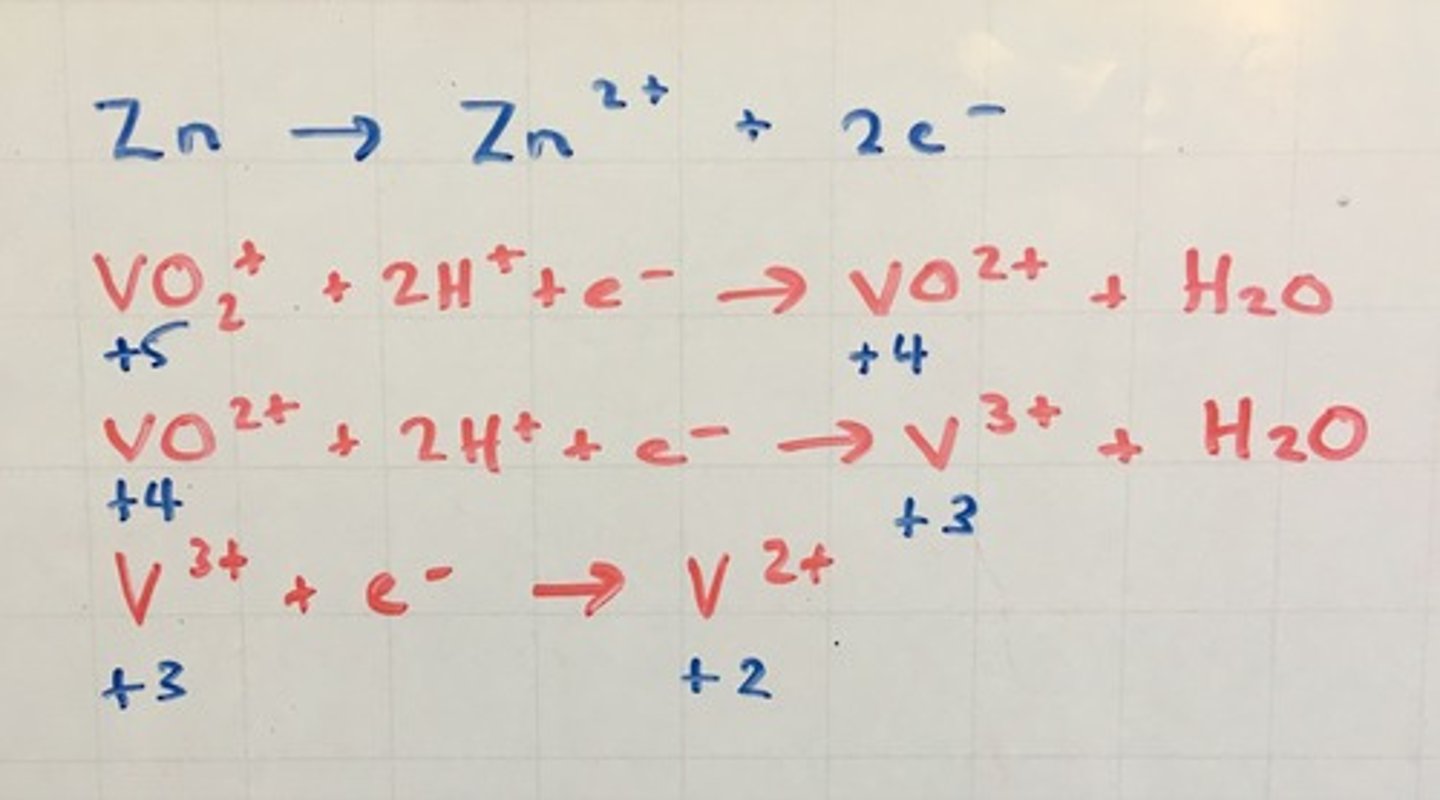 Zn → Zn²⁺ + 2e⁻
VO₂⁺ + 2H⁺ + e⁻ → VO²⁺ + H₂O
+5 +4
VO²⁺ + 2H⁺ + e⁻ → V³⁺ + H₂O
+4 +3
V³⁺ + e⁻ → V²⁺
+3 +2